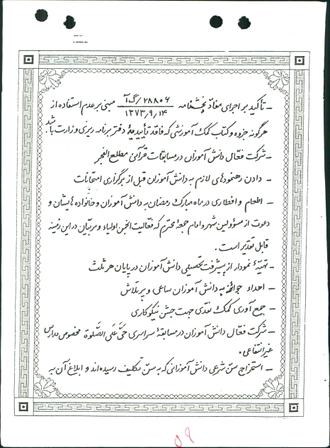 - تأکید بر اجرای مفاد بخشنامه ۲۸۸۰۶/گ‌آ ۱۳۷۳/۹/۱۴ مبنی بر عدم استفاده از
هرگونه جزوه و کتاب کمک آموزشی که فاقد تأییدیهٔ دفتر برنامه ریزی وزارت باشد
- شرکت فعال دانش آموزان در مسابقات قرآنی مطلع الفجر
- دادن رهنمودهای لازم به دانش آموزان قبل از برگزاری امتحانات
- اطعام و افطاری در ماه مبارک رمضان به دانش آموزان و خانواده هایشان و
دعوت از مسؤولین شهر و امام جمعهٔ محترم که فعالیت انجمن اولیاء و مربیان در این زمینه
قابل تقدیر است.
- تهیهٔ نمودار از پیشرفت تحصیلی دانش آموزان در پایان هر ثلث
- اهداء جوائز به دانش آموزان ساعی و پرتلاش
- جمع آوری کمک نقدی جهت جشن نیکوکاری
- شرکت فعال دانش آموزان در مسابقهٔ سراسری حیّ علی الصّلوة مخصوص مدارس
غیر انتفاعی.
- استخراج سنّ شرعی دانش آموزانی که به سنّ تکلیف رسیده اند و ابلاغ آن به
۵۹